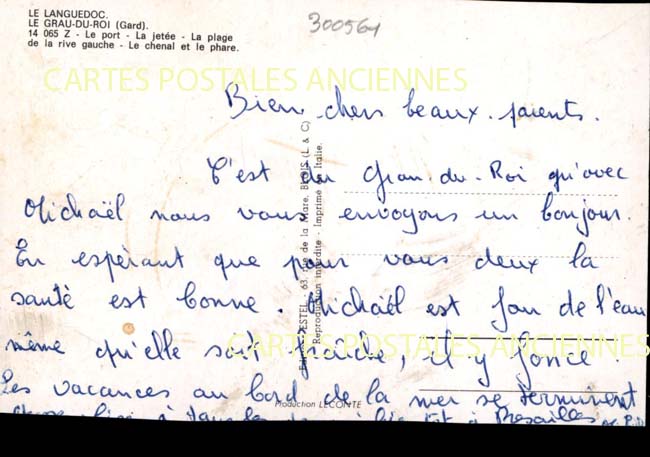 LE LANGUEDOC.
LE GRAU-DU-ROI (Gard).
14 065 Z - Le port - La jetée - La plage
de la rive gauche - Le chenal et le phare.
300561
CARTES POSTALES ANCIENNES
Bien chers beaux-parents.
C'est du Grau-du-Roi qu'avec
Michaël nous vous envoyons un bonjour.
En espérant que pour vous deux la
santé est bonne. Michaël est fou de l'eau
même qu'elle soit fraîche, il y fonce.
CARTES POSTALES ANCIENNES
Les vacances au bord de la mer se terminent
à tous les
63, rue de la Mare, BLOIS (L. & C)
Reproduction interdite - Imprimé en Italie.
Production LECONTE